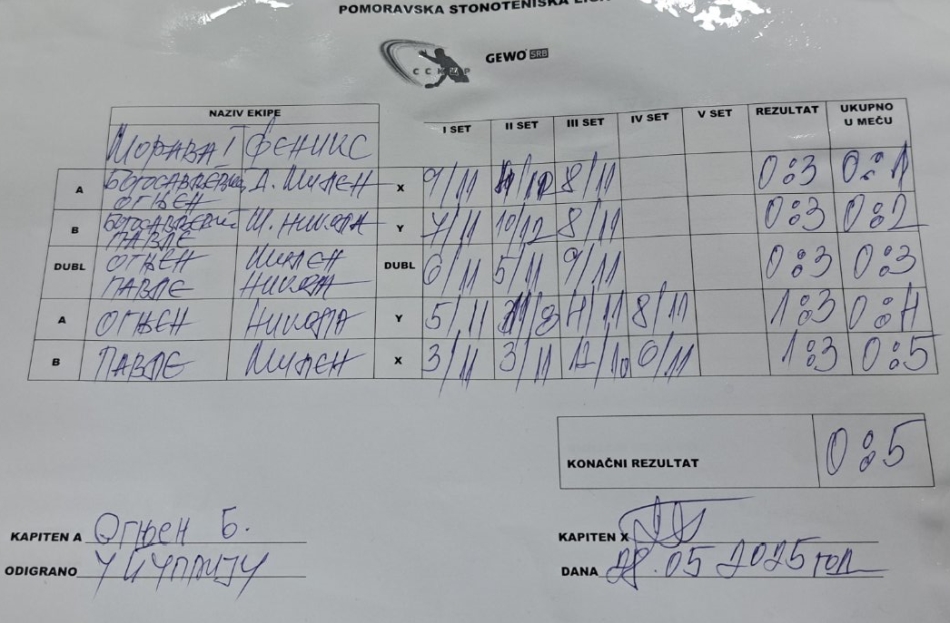 POMORAVSKA STONOTENISKA LIGA
CCM P
GEWO SRB
NAZIV EKIPE I SET II SET III SET IV SET V SET REZULTAT UKUPNO U MEČU
МОРАВА I ФЕНИКС
A БОГОСАВЉЕВИЋ ОГЊЕН А. МИЛЕН X 9/11 /12 8/11 0:3 0:1
B БОГОСАВЉЕВИЋ ПАВЛЕ М. НИКОЛА Y 7/11 10/12 8/11 0:3 0:2
DUBL ОГЊЕН ПАВЛЕ МИЛЕН НИКОЛА DUBL 6/11 5/11 9/11 0:3 0:3
A ОГЊЕН НИКОЛА Y 5/11 11/8 4/11 8/11 1:3 0:4
B ПАВЛЕ МИЛЕН X 3/11 3/11 12/10 6/11 1:3 0:5
KONAČNI REZULTAT 0:5
KAPITEN A Огњен Б. KAPITEN X
ODIGRANO У ЋУПРИЈУ DANA 28.05 2025 год